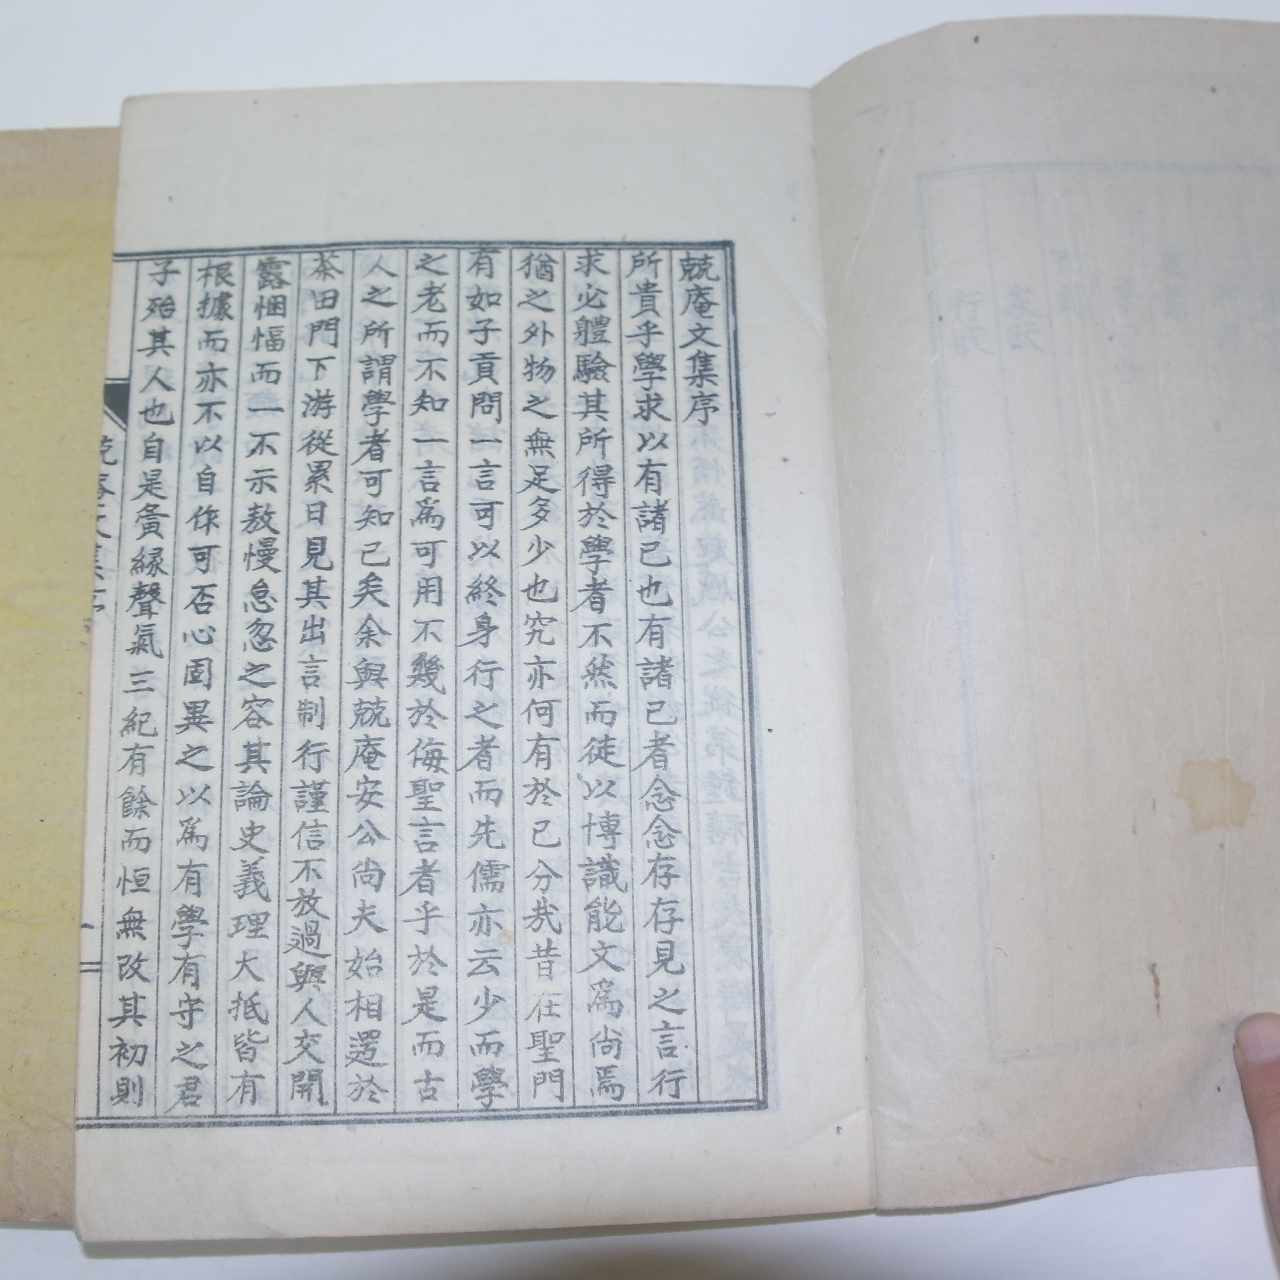 兢庵文集序
所貴乎學求以有諸己也有諸己者念念存存見之言行
求必體驗其所得於學者不然而徒以博識能文爲尙焉
猶之外物之無足多少也究亦何有於己分哉昔在聖門
有如子貢問一言可以終身行之者而先儒亦云少而學
之老而不知一言爲可用不幾於侮聖言者乎於是而古
人之所謂學者可知已矣余與兢庵安公尙夫始相遌於
茶田門下游從累日見其出言制行謹信不放過與人交開
露悃愊而一不示敖慢怠忽之容其論史義理大抵皆有
根據而亦不以自作可否心固異之以爲有學有守之君
子殆其人也自是夤緣聲氣三紀有餘而恒無改其初則
兢庵文集序
一